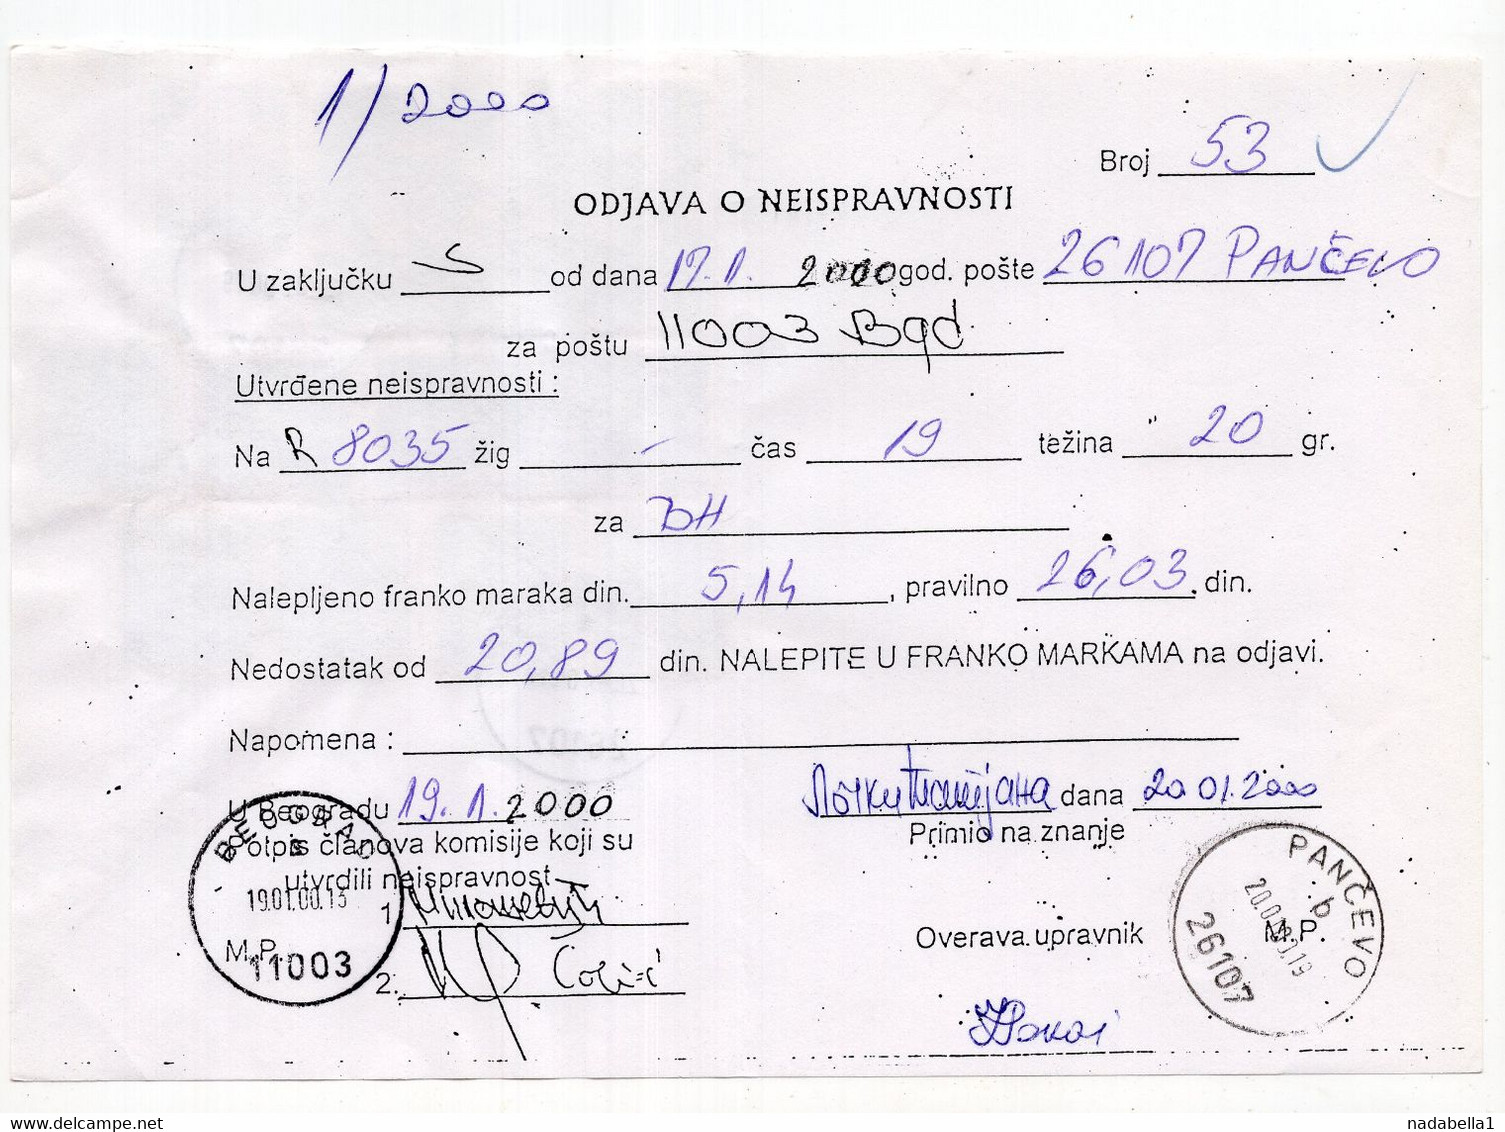 1/2000
Broj 53
ODJAVA O NEISPRAVNOSTI
U zaključku S od dana 17.1. 2000 god. pošte 26107 PANČEVO
za poštu 11003 Bgd
Utvrđene neispravnosti :
Na R 8035 žig - čas 19 težina 20 gr.
za BH
Nalepljeno franko maraka din. 5,14, pravilno 26,03 din.
Nedostatak od 20,89 din. NALEPITE U FRANKO MARKAMA na odjavi.
Napomena :
U Beogradu 19.1.2000
dana 20 01.2000
Potpis članova komisije koji su
utvrdili neispravnost
Primio na znanje
1
M.P.
2.
Overava upravnik M.P.
BEOGRAD
19.01.00.13
11003
PANČEVO
b
26107
Located at: delcampe.net
nadabella1